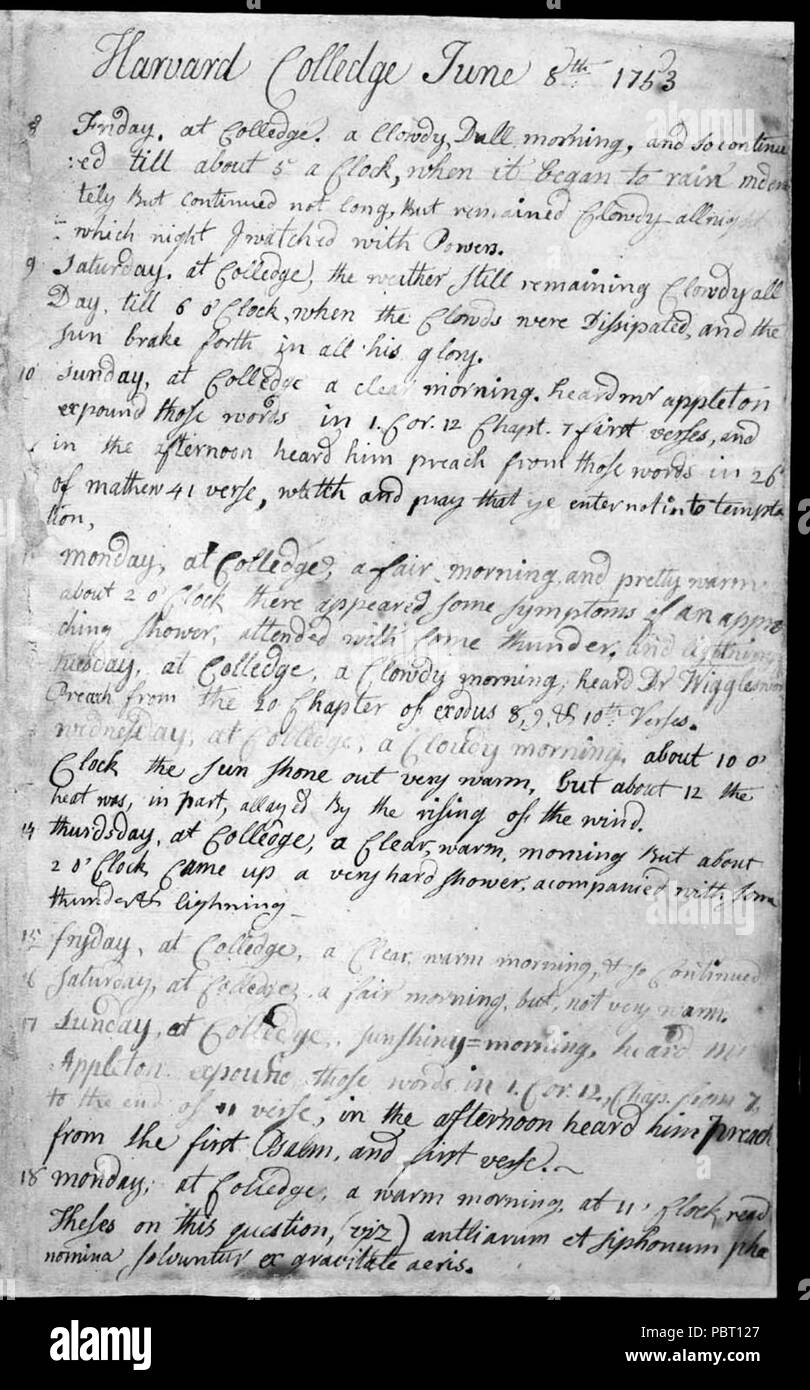 Harvard Colledge June 8th 1753
8 Friday. at Colledge. a Clowdy, Dull morning, and so continu
:ed till about 5 a Clock, when it began to rain mdera
tely But continued not long, But remained Clowdy all night
which night I watched with Powers.
9 Saturday. at Colledge, the weither still remaining Clowdy all
Day, till 6 o'Clock, when the Clowds were Dissipated, and the
sun brake forth in all his glory.
10 Sunday, at Colledge a clear morning. heard mr appleton
expound those words in 1. Cor. 12 Chapt. 7 first verses, and
in the afternoon heard him preach from those words in 26
of mathew 41 verse, watch and pray that ye enter not into tempta
tion,
monday, at Colledge, a fair morning, and pretty warm
about 2 o'Clock there appeared some symptoms of an appro
ching shower, attended with some thunder, and lightning
tuesday, at Colledge, a Clowdy morning, heard Dr Wigglesworth
Preach from the 20 Chapter of exodus 8, 9, & 10th Verses.
wednesday, at Colledge, a Cloudy morning. about 10 o'
Clock the sun shone out very warm, but about 12 the
heat was, in part, allay'd By the rising of the wind.
14 thurdsday, at Colledge, a Clear, warm, morning But about
2 o'Clock Came up a very hard shower, acompanied with som
thunder & lighning
15 fryday, at Colledge, a Clear warm morning, & so Continued
16 Saturday, at Colledge, a fair morning, but, not very warm.
17 Sunday, at Colledge, sunshiny=morning, heard mr
Appleton expound those words in 1. Cor. 12, Chap. from 7,
to the end of 11 verse, in the afternoon heard him preach
from the first Psalm, and first verse.
18 monday, at Colledge, a warm morning, at 11 o' Clock, read
Theses on this question, (viz) antliarum et siphonum phæ
nomina, solvuntur ex gravitate aeris.
alamy
alamy
Image ID: PBT127
www.alamy.com